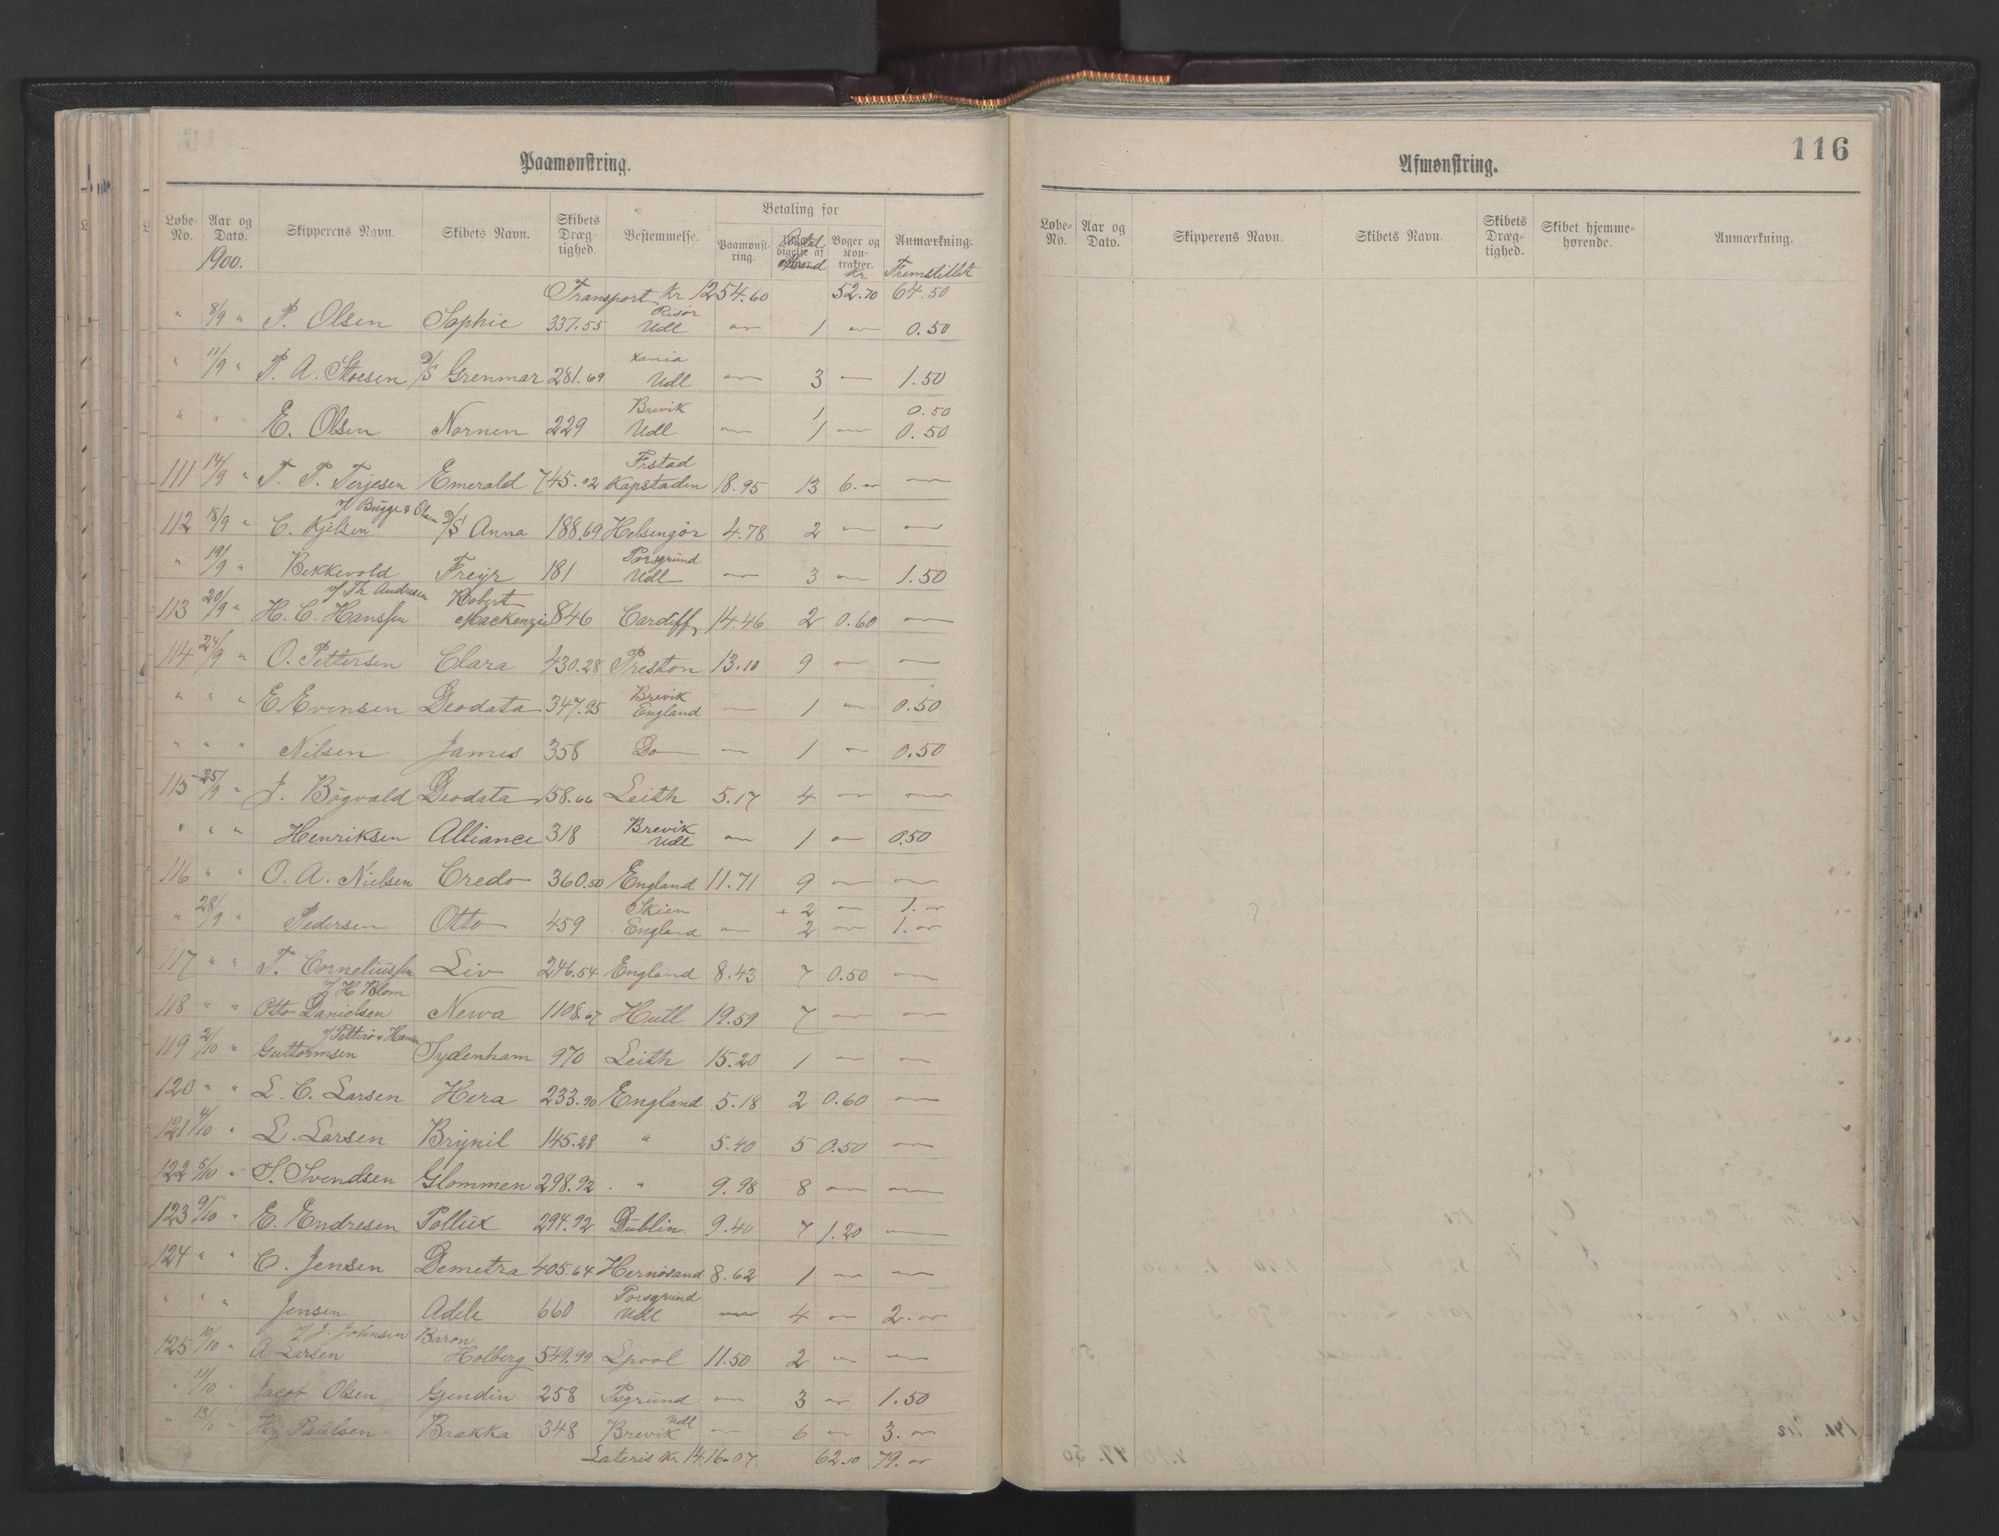 Paamønstring.
Løbe-No. Aar og Dato. Skipperens Navn. Skibets Navn. Skibets Dræg-tighed. Bestemmelse. Betaling for Paamønst-ring. Antal Mand Bøger og Kon-trakter. Anmærkning.
1900. Kr Fremstillet
Transport Kr 1254.60 52.70 64.50
" 8/9 " P. Olsen Sophie 337.55 Risør Udl — 1 — 0.50
" 11/9 " P. A. Stoesen D/S Grenmar 281.69 Xania Udl — 3 — 1.50
" " E. Olsen Nornen 229 Brevik Udl — 1 1 — 0.50 0.50
111 14/9 " T. P. Terjesen Emerald 745.92 Frstad Kapstaden 18.95 13 6.— —
112 18/9 " C. Kjelsen v/ Bugge & Olsen D/S Anna 188.69 Helsingør 4.78 2 — —
" 19/9 " Bekkevold Freyr 181 Porsgrund Udl — 3 — 1.50
113 20/9 " H. C. Hanssen v/ Th Andresen Robert Mackenzie 846 Cardiff 14.46 2 0.60 —
114 24/9 " O. Pettersen Clara 430.28 Preston 13.10 9 — —
" " " E. Evensen Deodata 347.95 Brevik England — 1 — 0.50
" " " Nilsen James 358 Do — — 1 — 0.50
115 25/9 " J. Bøgvald Deodata 158.66 Leith 5.17 4 — —
" " " Henriksen Alliance 318 Brevik Udl — 1 — 0.50
116 " " O. A. Nielsen Credo 360.50 England 11.71 9 — —
" 28/9 " Pedersen Otto 459 Skien England — + 2 2 — 1.— 1.—
117 " " T. Corneliussen Liv 246.54 England 8.43 7 0.50 —
118 " " Otto Danielsen v/ H Blom Newa 1108.67 Hull 19.59 7 — —
119 2/10 " Guttormsen v/ Petterø & Hansen Sydenham 970 Leith 15.20 1 — —
120 " " L. C. Larsen Hera 233.90 England 5.18 2 0.60 —
121 4/10 " L. Larsen Brynil 145.28 " 5.40 5 0.50 —
122 5/10 " S. Svendsen Glommen 298.92 " 9.98 8 — —
123 9/10 " E. Endresen Pollux 294.92 Dublin 9.40 7 1.20 —
124 " " C. Jensen Demetra 405.64 Hernøsand 8.62 1 — —
" " " Jensen Adele 660 Porsgrund Udl — 4 — 2.—
125 10/10 " A Larsen v/ J. Johnsen Baron Holberg 549.99 Lpool 11.50 2 — —
" 11/10 " Jacob Olsen Gjendin 258 Psgrund — 3 — 1.50
" 13/10 " Hj Paulsen Brakka 348 Brevik Udl — 6 — 3.—
Lateris Kr 1416.07 62.10 79.—
116
Afmønstring.
Løbe-No. Aar og Dato. Skipperens Navn. Skibets Navn. Skibets Dræg-tighed. Skibet hjemme-hørende. Anmærkning.